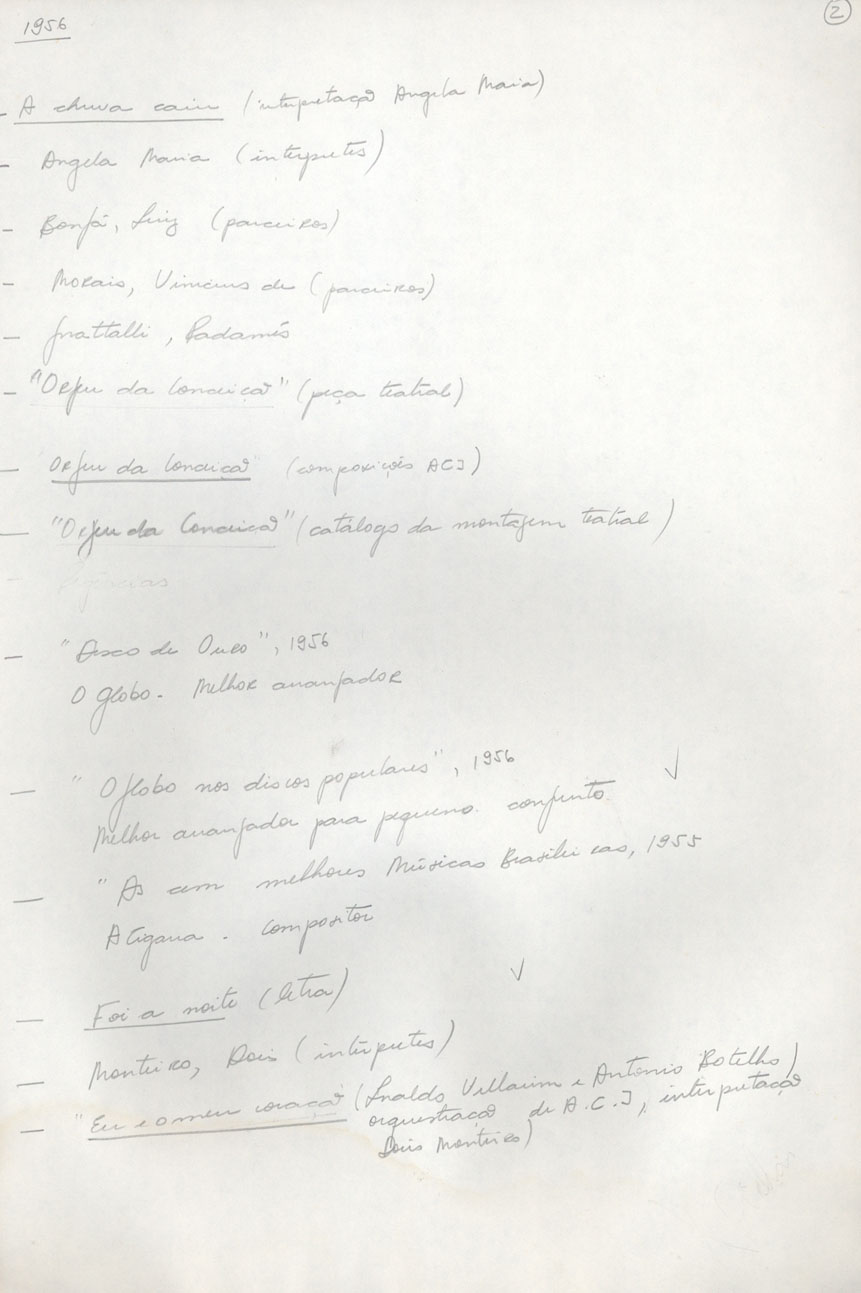 1956
2
- A chuva caiu (interpretação Angela Maria)
- Angela Maria (intérpretes)
- Bonfá, Luiz (parceiros)
- Morais, Vinicius de (parceiros)
- Gnattalli, Radamés
- "Orfeu da Conceição" (peça teatral)
- Orfeu da Conceição" (composições ACJ)
- "Orfeu da Conceição" (catálogo da montagem teatral)
- "Disco de Ouro", 1956
O Globo. Melhor arranjador
- "O Globo nos discos populares", 1956
Melhor arranjador para pequeno conjunto.
- "As cem melhores Músicas Brasileiras, 1955
A Cigarra. Compositor
- Foi a noite (letra)
- Monteiro, Dóris (intérpretes)
- "Eu e o meu coração" (Inaldo Villarim e Antonio Botelho)
orquestração de A.C.J, interpretação
Dóris Monteiro)